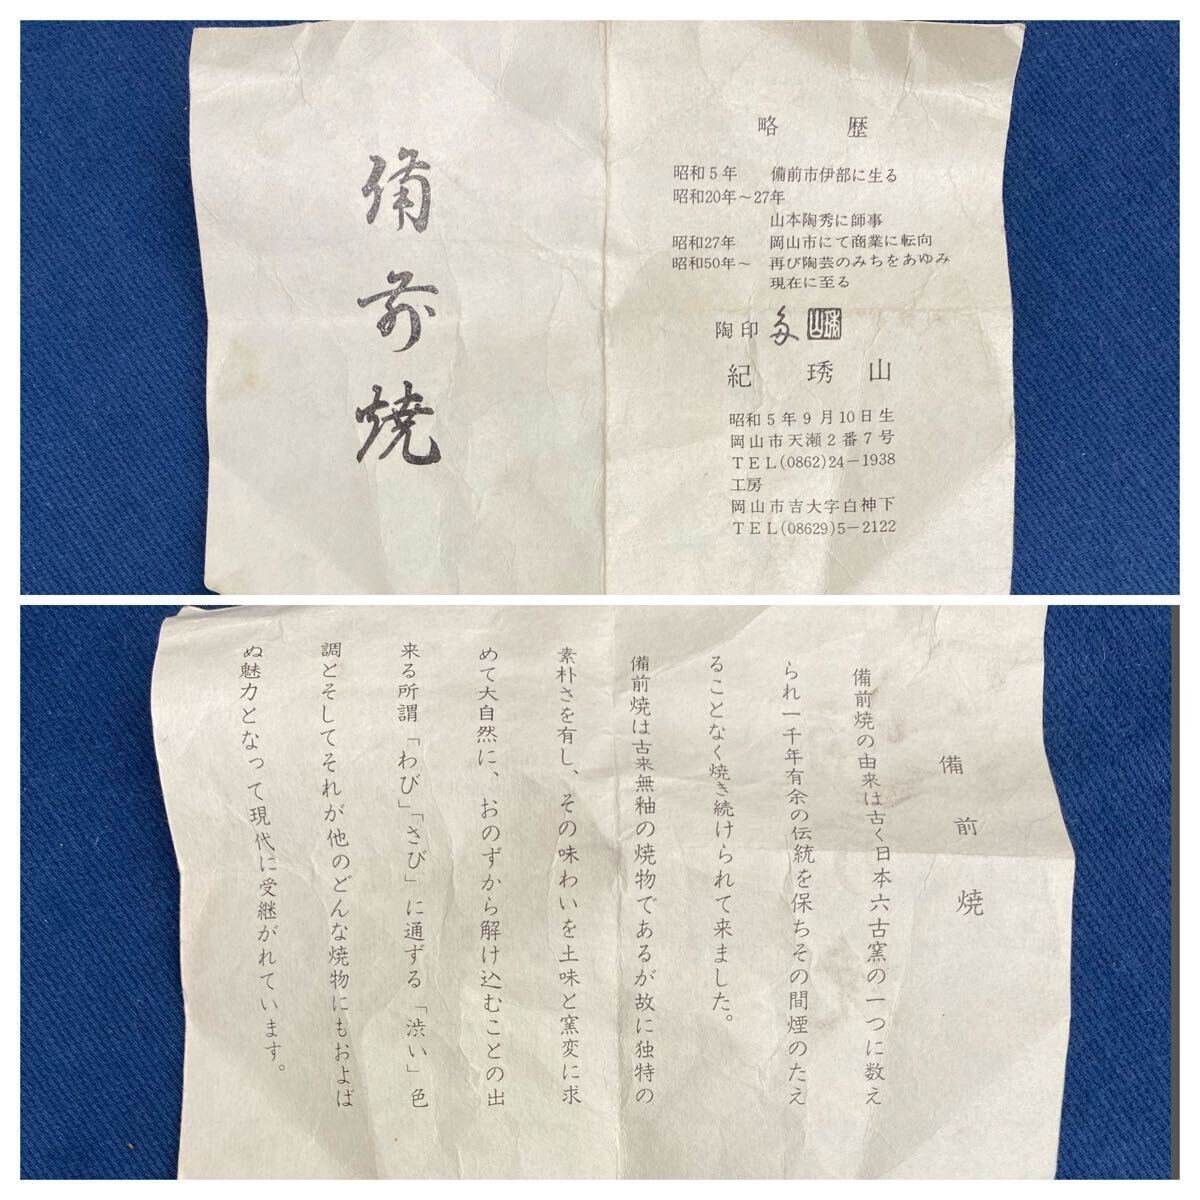 備前焼
略歴
昭和5年 備前市伊部に生る
昭和20年～27年
山本陶秀に師事
昭和27年 岡山市にて商業に転向
昭和50年～ 再び陶芸のみちをあゆみ
現在に至る
陶印
紀琇山
昭和5年9月10日生
岡山市天瀬2番7号
TEL(0862)24-1938
工房
岡山市吉大字白神下
TEL(08629)5-2122
備前焼
備前焼の由来は古く日本六古窯の一つに数え
られ一千年有余の伝統を保ちその間煙のたえ
ることなく焼き続けられて来ました。
備前焼は古来無釉の焼物であるが故に独特の
素朴さを有し、その味わいを土味と窯変に求
めて大自然に、おのずから解け込むことの出
来る所謂「わび」「さび」に通ずる「渋い」色
調とそしてそれが他のどんな焼物にもおよば
ぬ魅力となって現代に受継がれています。